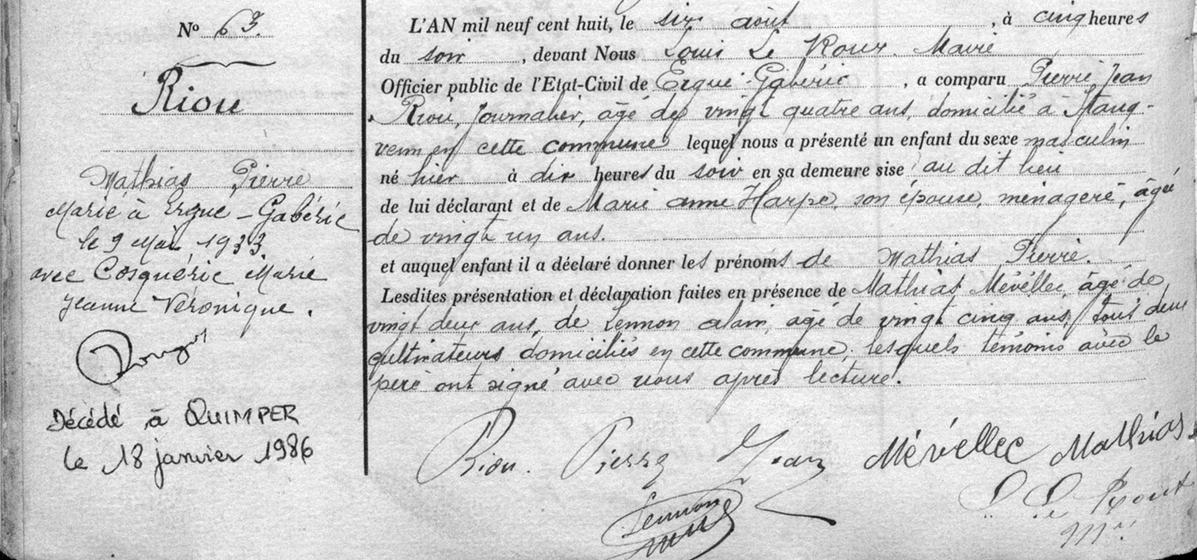 N° 63.
Riou
Mathias Pierre
Marié à Ergué-Gabéric
le 9 Mai 1933
avec Cosquéric Marie
Jeanne Véronique.
Décédé à QUIMPER
le 18 janvier 1986
L'AN mil neuf cent huit, le six août, à cinq heures
du soir, devant Nous Louis Le Roux Maire
Officier public de l'Etat-Civil de Ergué-Gabéric, a comparu Pierre Jean
Riou, Journalier, âgé de vingt quatre ans, domicilié à Stang-
venn en cette commune lequel nous a présenté un enfant du sexe masculin
né hier à dix heures du soir en sa demeure sise au dit lieu
de lui déclarant et de Marie Anne Harpe, son épouse, ménagère, âgée
de vingt un ans.
et auquel enfant il a déclaré donner les prénoms de Mathias Pierre.
Lesdites présentation et déclaration faites en présence de Mathias Mévellec, âgé de
vingt deux ans, de Lennon alain, âgé de vingt cinq ans, tous deux
cultivateurs domiciliés en cette commune, lesquels témoins avec le
père ont signé avec nous après lecture.
Riou. Pierre Jean Mévellec Mathias
Lennon
L Le Roux